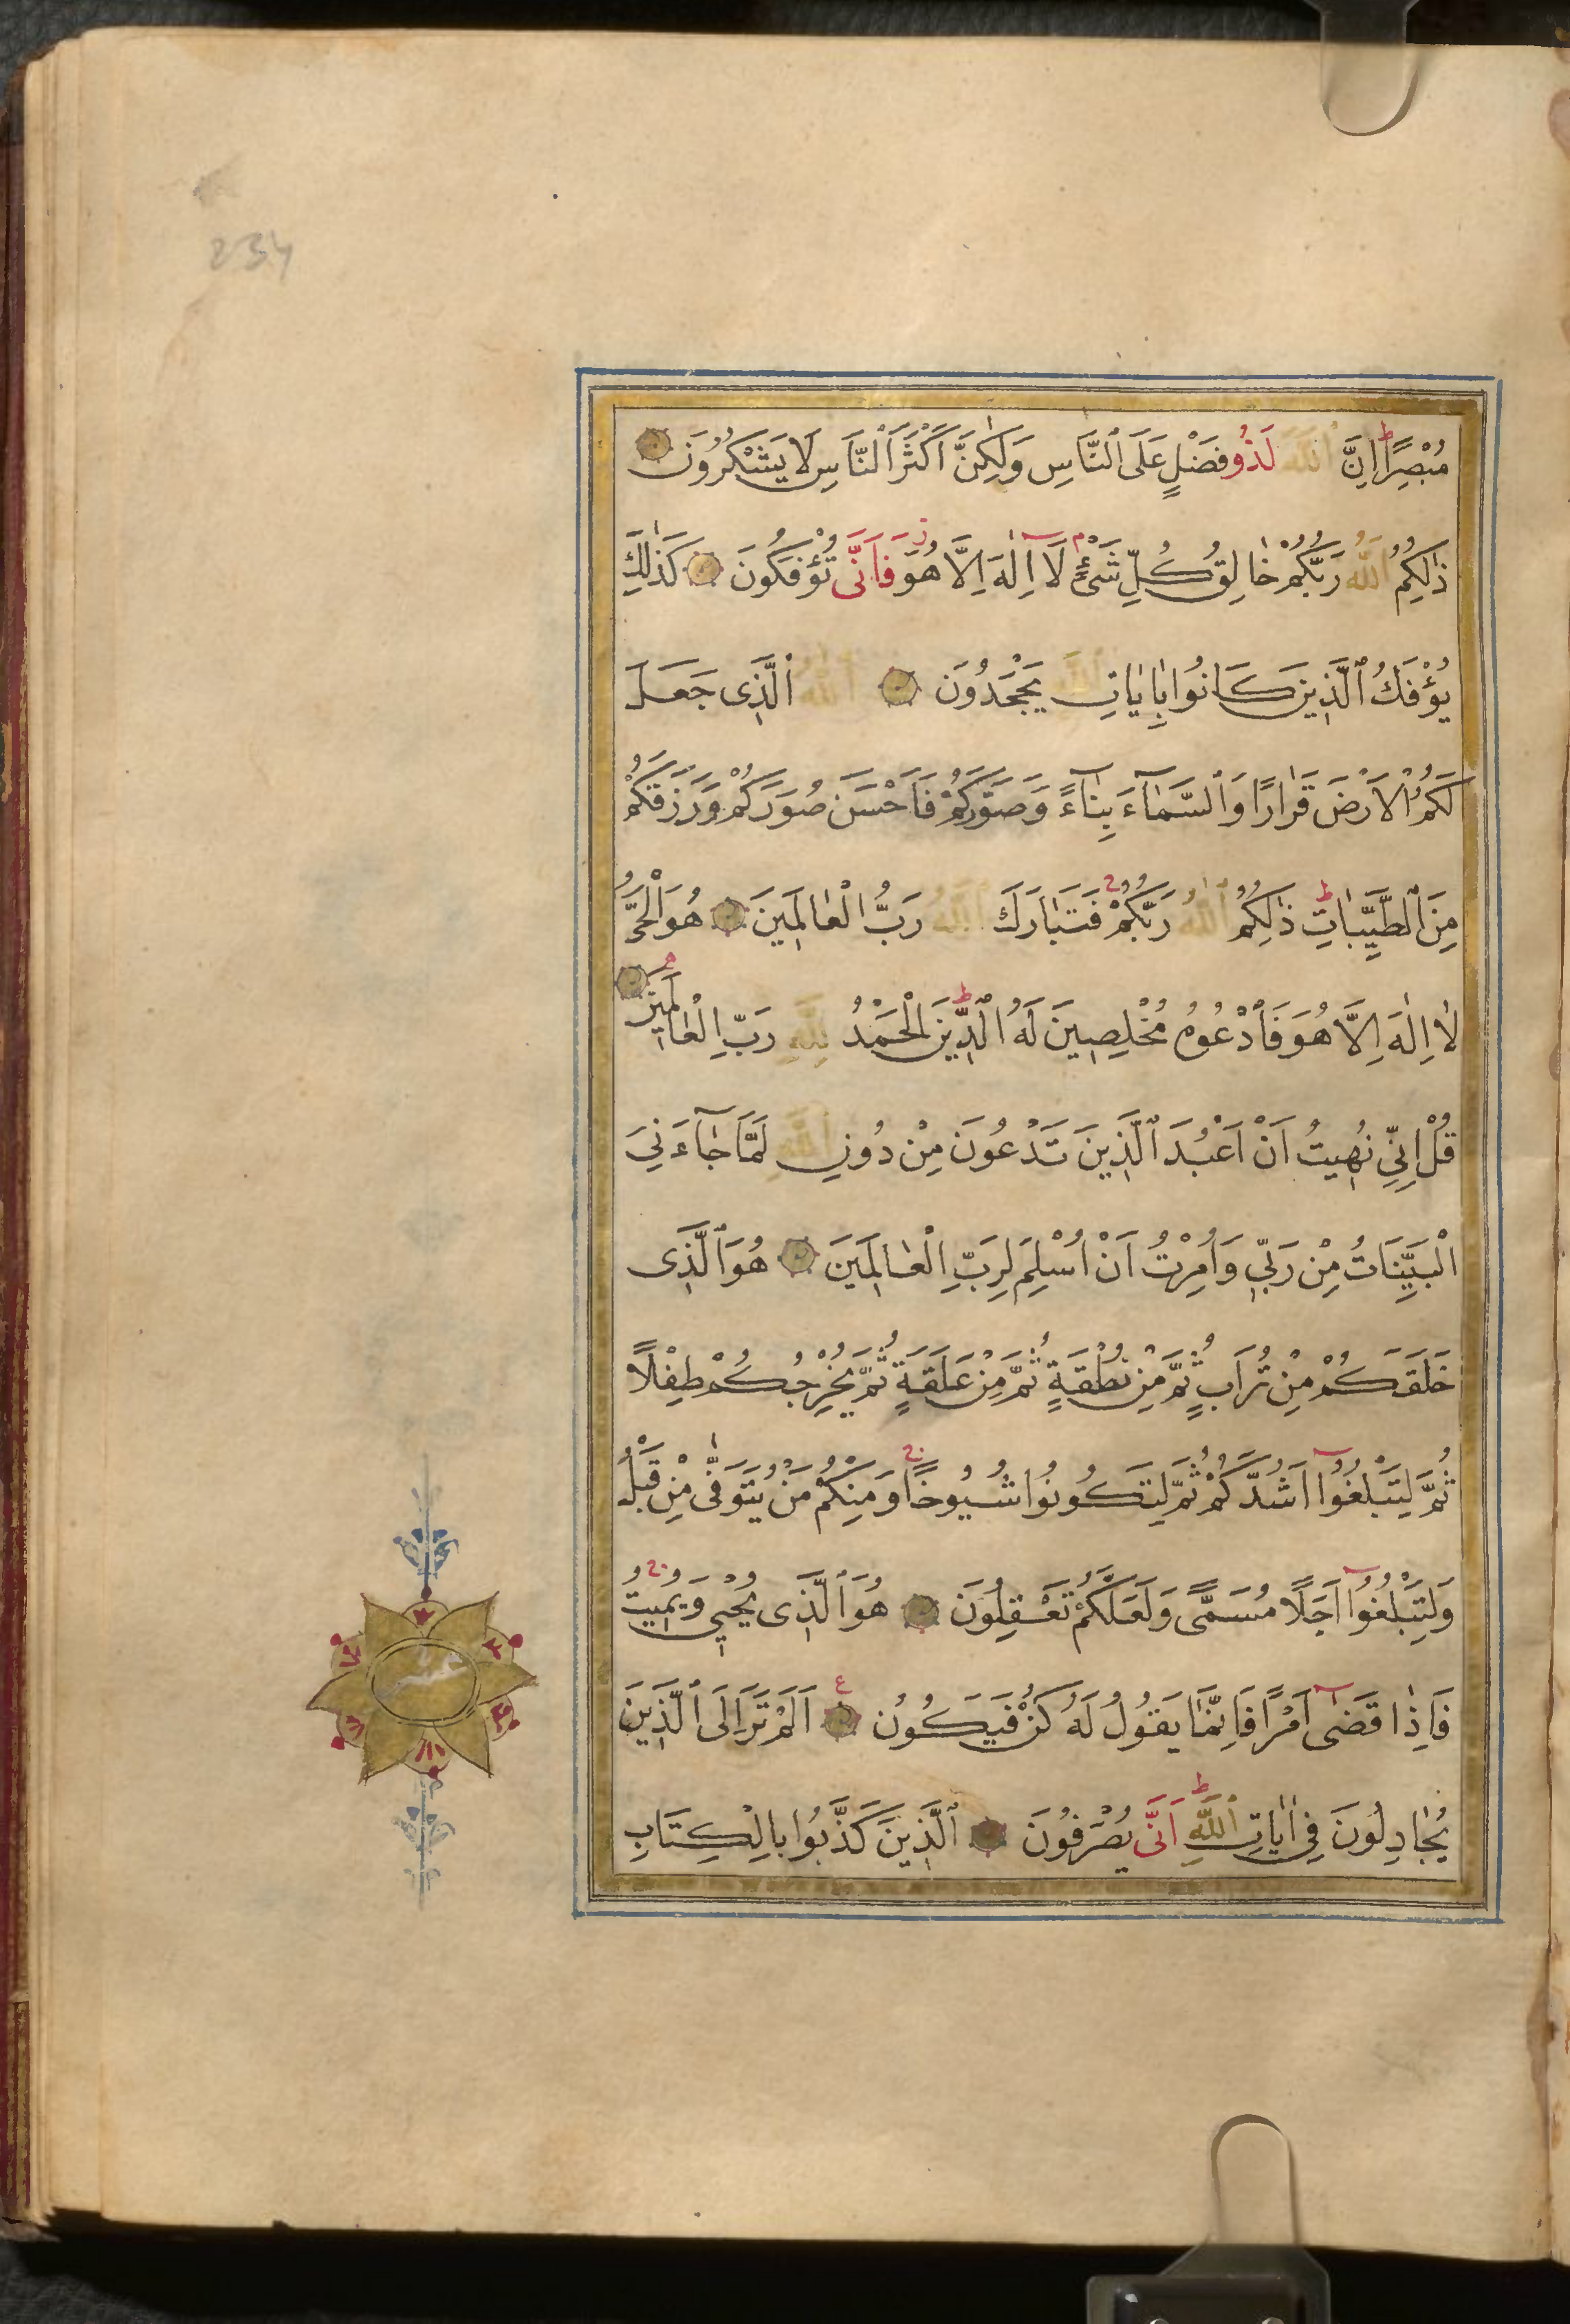 234
مُبْصِرًا اِنَّ ٱللّٰهَ لَذُو فَضْلٍ عَلَى ٱلنَّاسِ وَلٰكِنَّ اَكْثَرَ ٱلنَّاسِ لَا يَشْكُرُونَ
ذٰلِكُمُ ٱللّٰهُ رَبُّكُمْ خَالِقُ كُلِّ شَيْءٍ لَا اِلٰهَ اِلَّا هُوَ فَاَنَّى تُؤْفَكُونَ كَذٰلِكَ
يُؤْفَكُ ٱلَّذِينَ كَانُوا بِاٰيَاتِ ٱللّٰهِ يَجْحَدُونَ ٱللّٰهُ ٱلَّذِى جَعَلَ
لَكُمُ ٱلْاَرْضَ قَرَارًا وَٱلسَّمَآءَ بِنَآءً وَصَوَّرَكُمْ فَاَحْسَنَ صُوَرَكُمْ وَرَزَقَكُمْ
مِنَ ٱلطَّيِّبَاتِ ذٰلِكُمُ ٱللّٰهُ رَبُّكُمْ فَتَبَارَكَ ٱللّٰهُ رَبُّ الْعَالَمِينَ هُوَ الْحَىُّ
لَا اِلٰهَ اِلَّا هُوَ فَٱدْعُوهُ مُخْلِصِينَ لَهُ ٱلدِّينَ اَلْحَمْدُ لِلّٰهِ رَبِّ الْعَالَمِينَ
قُلْ اِنِّى نُهِيتُ اَنْ اَعْبُدَ ٱلَّذِينَ تَدْعُونَ مِنْ دُونِ ٱللّٰهِ لَمَّا جَآءَنِىَ
الْبَيِّنَاتُ مِنْ رَبِّى وَاُمِرْتُ اَنْ اُسْلِمَ لِرَبِّ الْعَالَمِينَ هُوَ ٱلَّذِى
خَلَقَكُمْ مِنْ تُرَابٍ ثُمَّ مِنْ نُطْفَةٍ ثُمَّ مِنْ عَلَقَةٍ ثُمَّ يُخْرِجُكُمْ طِفْلًا
ثُمَّ لِتَبْلُغُوٓا اَشُدَّكُمْ ثُمَّ لِتَكُونُوا شُيُوخًا وَمِنْكُمْ مَنْ يُتَوَفّٰى مِنْ قَبْلُ
وَلِتَبْلُغُوٓا اَجَلًا مُسَمًّى وَلَعَلَّكُمْ تَعْقِلُونَ هُوَ ٱلَّذِى يُحْيِى وَيُمِيتُ
فَاِذَا قَضٰىٓ اَمْرًا فَاِنَّمَا يَقُولُ لَهُ كُنْ فَيَكُونُ اَلَمْ تَرَ اِلَى ٱلَّذِينَ
يُجَادِلُونَ فِى اٰيَاتِ ٱللّٰهِ اَنَّى يُصْرَفُونَ ٱلَّذِينَ كَذَّبُوا بِالْكِتَابِ